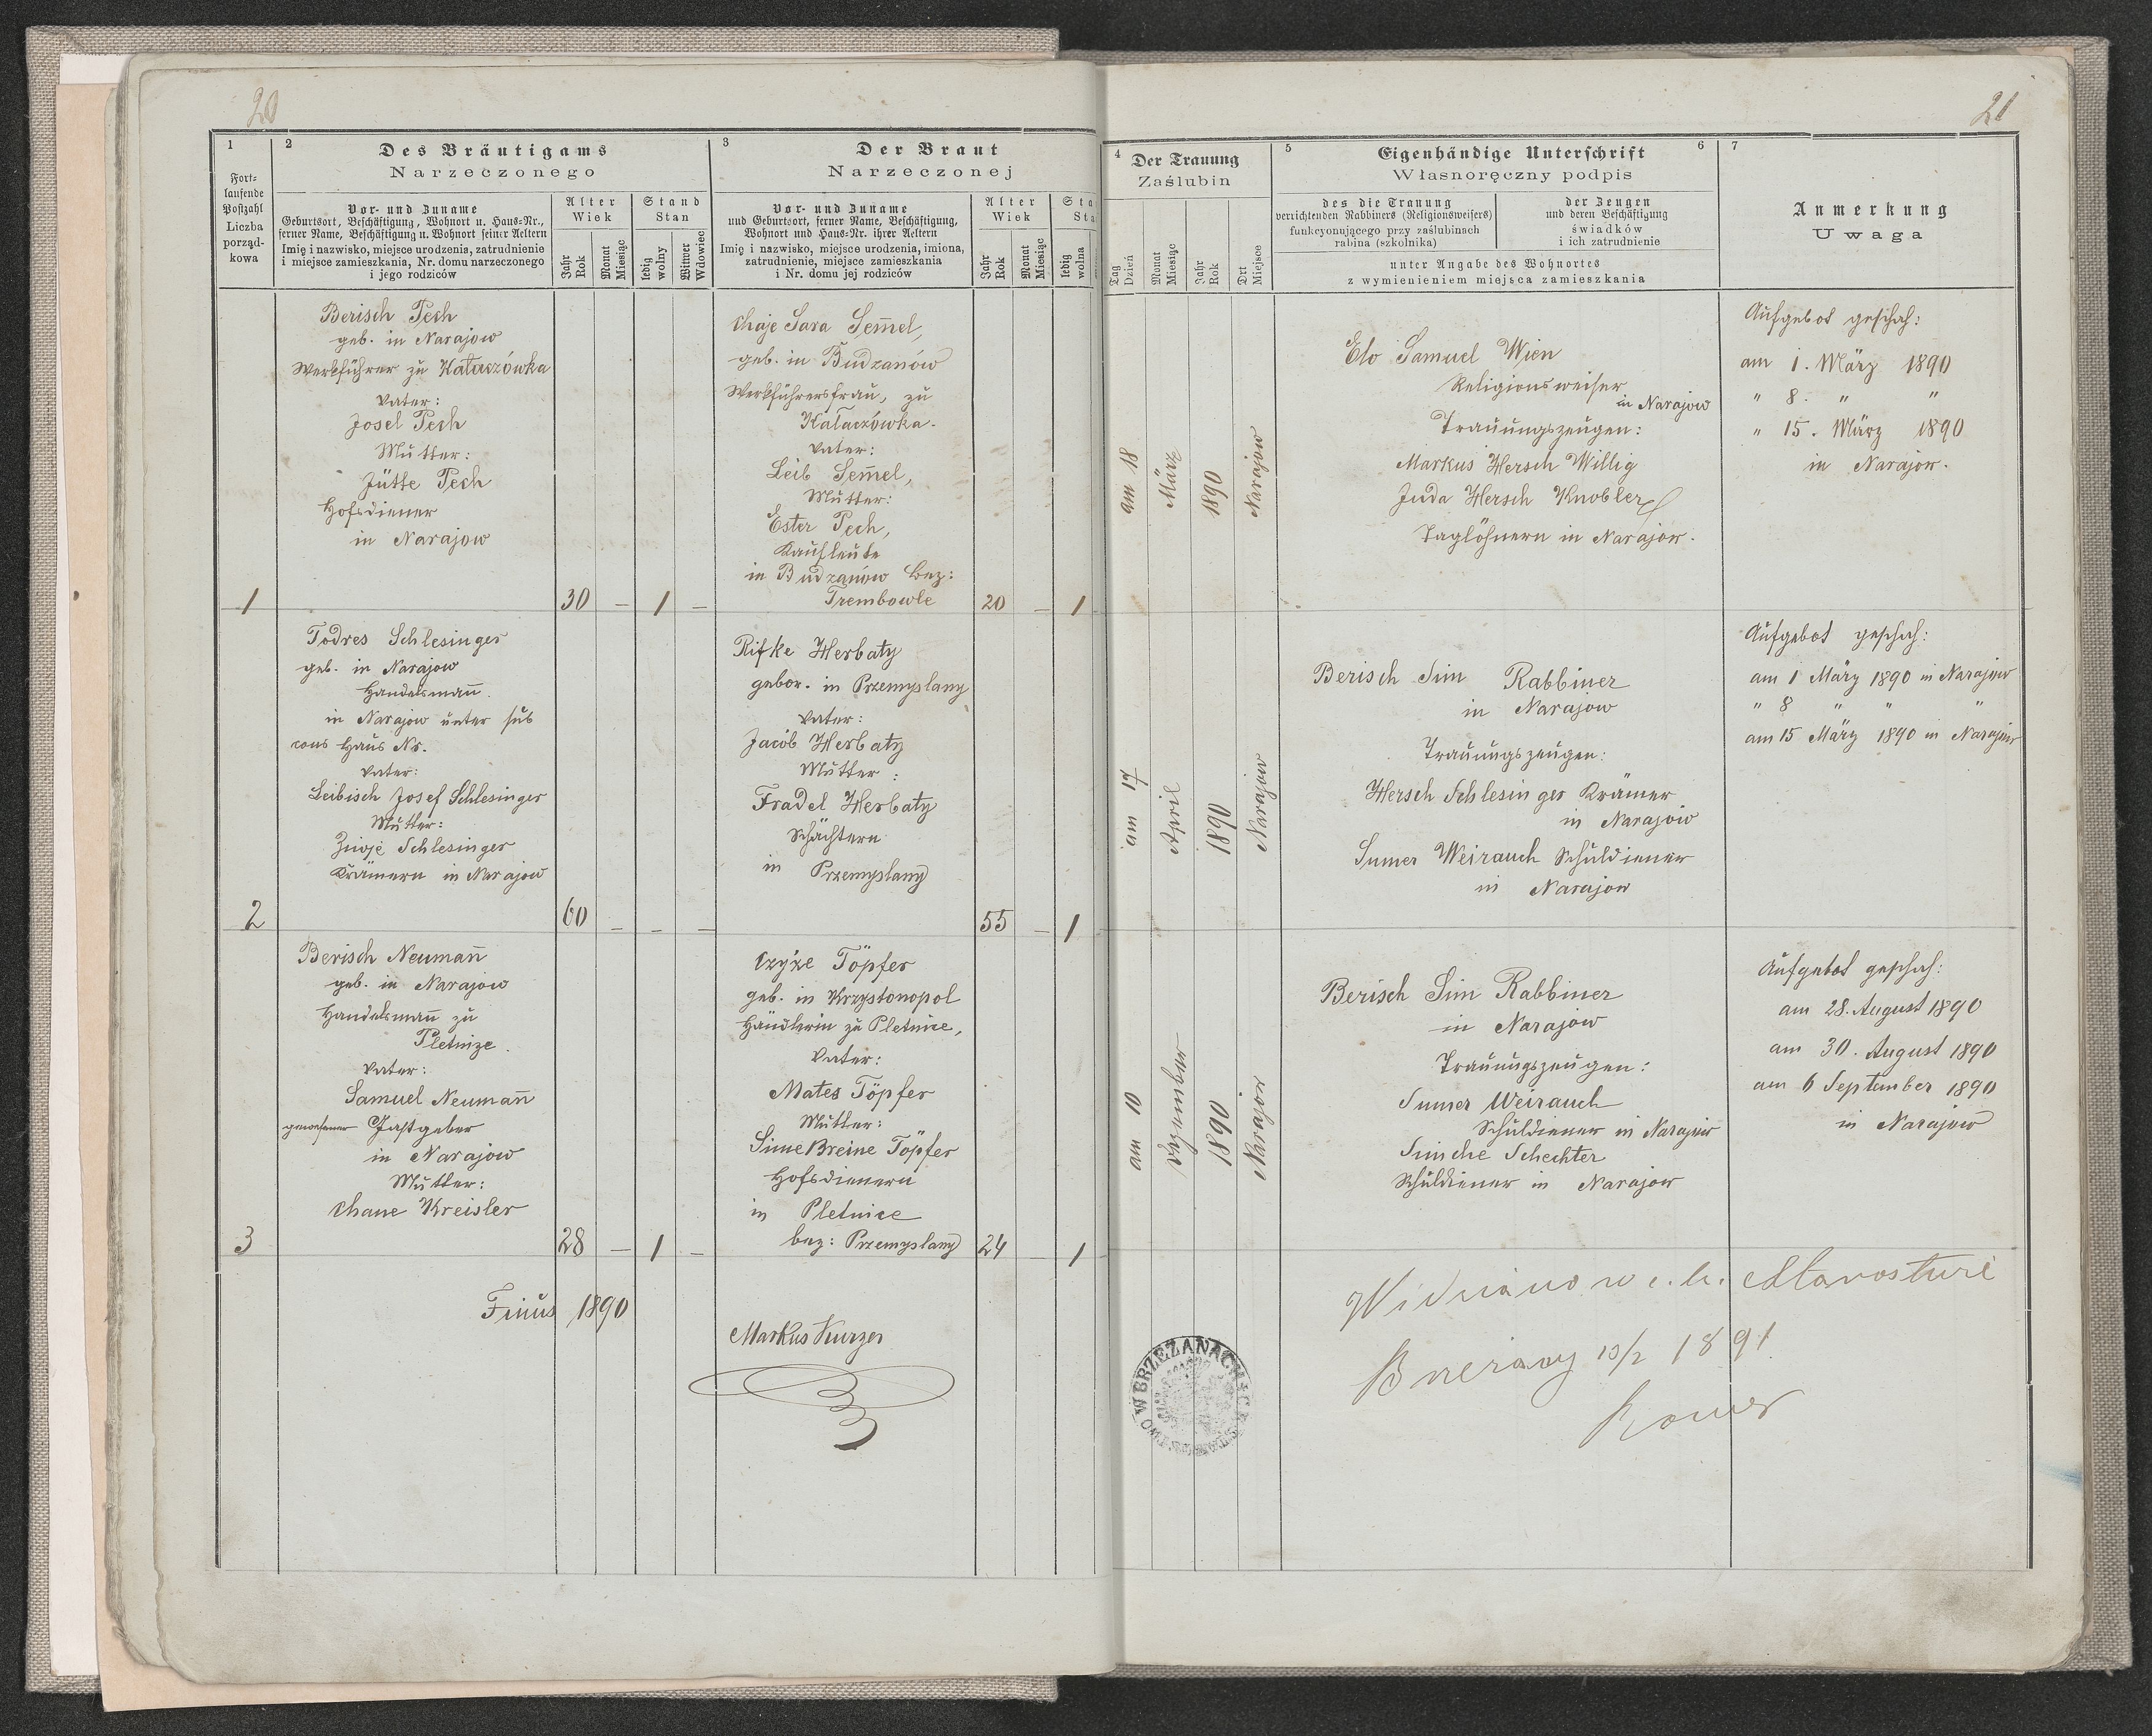 20
21
1
Fort-
laufende
Postzahl
Liczba
porząd-
kowa
2
Des Bräutigams
Narzeczonego
Vor- und Zuname
Geburtsort, Beschäftigung, Wohnort u. Haus-Nr.,
ferner Name, Beschäftigung u. Wohnort seiner Aeltern
Imię i nazwisko, miejsce urodzenia, zatrudnienie
i miejsce zamieszkania, Nr. domu narzeczonego
i jego rodziców
Alter
Wiek
Jahr
Rok
Monat
Miesiąc
Stand
Stan
ledig
wolny
Witwer
Wdowiec
3
Der Braut
Narzeczonej
Vor- und Zuname
und Geburtsort, ferner Name, Beschäftigung,
Wohnort und Haus-Nr. ihrer Aeltern
Imię i nazwisko, miejsce urodzenia, imiona,
zatrudnienie, miejsce zamieszkania
i Nr. domu jej rodziców
Alter
Wiek
Jahr
Rok
Monat
Miesiąc
Sta
Sta
ledig
wolna
4
Der Trauung
Zaślubin
Tag
Dzień
Monat
Miesiąc
Jahr
Rok
Ort
Miejsce
5
Eigenhändige Unterschrift
6
Własnoręczny podpis
des die Trauung
verrichtenden Rabbiners (Religionsweisers)
funkcyonującego przy zaślubinach
rabina (szkolnika)
der Zeugen
und deren Beschäftigung
świadków
i ich zatrudnienie
unter Angabe des Wohnortes
z wymienieniem miejsca zamieszkania
7
Anmerkung
Uwaga
1
Berisch Pech
geb. in Narajow
Werkführer zu Kataczówka
Vater:
Josel Pech
Mutter:
Jütte Pech
Hofsdiener
in Narajow
30 – 1 –
Chaje Sara Sem̄el,
geb. in Budzanów
Werkführersfrau, zu
Kataczówka.
Vater:
Leib Sem̄el,
Mutter:
Ester Pech,
Kaufleute
in Budzanów Bez:
Trembowle
20 – 1
am 18
März
1890
Narajow
Elo Samuel Wien
Religionsweiser
in Narajow
Trauungszeugen:
Markus Hersch Willig
Juda Hersch Knobler
Taglöhnern in Narajow.
Aufgebot geschah:
am 1. März 1890
" 8. " "
" 15. März 1890
in Narajow.
2
Todres Schlesinger
geb. in Narajow
Handelsman̄.
in Narajow unter sub
cons Haus Nr.
Vater:
Leibisch Josef Schlesinger
Mutter:
Ziwje Schlesinger
Krämern in Narajow
60 – – –
Rifke Herbaty
gebor. in Przemyslany
Vater:
Jacob Herbaty
Mutter:
Fradel Herbaty
Schächtern
in Przemyslany
55 – 1
am 17
April
1890
Narajow
Berisch Sim Rabbiner
in Narajow
Trauungszeugen:
Hersch Schlesinger Krämer
in Narajow
Sumer Weirauch Schuldiener
in Narajow
Aufgebot geschah:
am 1 März 1890 in Narajow
" 8 " " "
am 15 März 1890 in Narajow
3
Berisch Neuman̄
geb. in Narajow
Handelsman̄ zu
Pletnize.
Vater:
Samuel Neuman̄
gewesener Gastgeber
in Narajow
Mutter:
Chane Kreisler
28 – 1 –
Czyże Töpfer
geb. in Krzystonopol
Händlerin zu Pletnice,
Vater:
Mates Töpfer
Mutter:
Sime Breine Töpfer
Hofsdienern
in Pletnice
bez: Przemyslany
24 – 1
am 10
Dezember
1890
Narajow
Berisch Sim Rabbiner
in Narajow
Trauungszeugen:
Sumer Weirauch
Schuldiener in Narajow
Simche Schechter
Schuldiener in Narajow
Aufgebot geschah:
am 28. August 1890
am 30. August 1890
am 6 September 1890
in Narajow
Finus 1890
Markus Kurzer
W BRZEŻANACH
Widziano w c. k. Starostwie
Brzeżany 13/2 1891